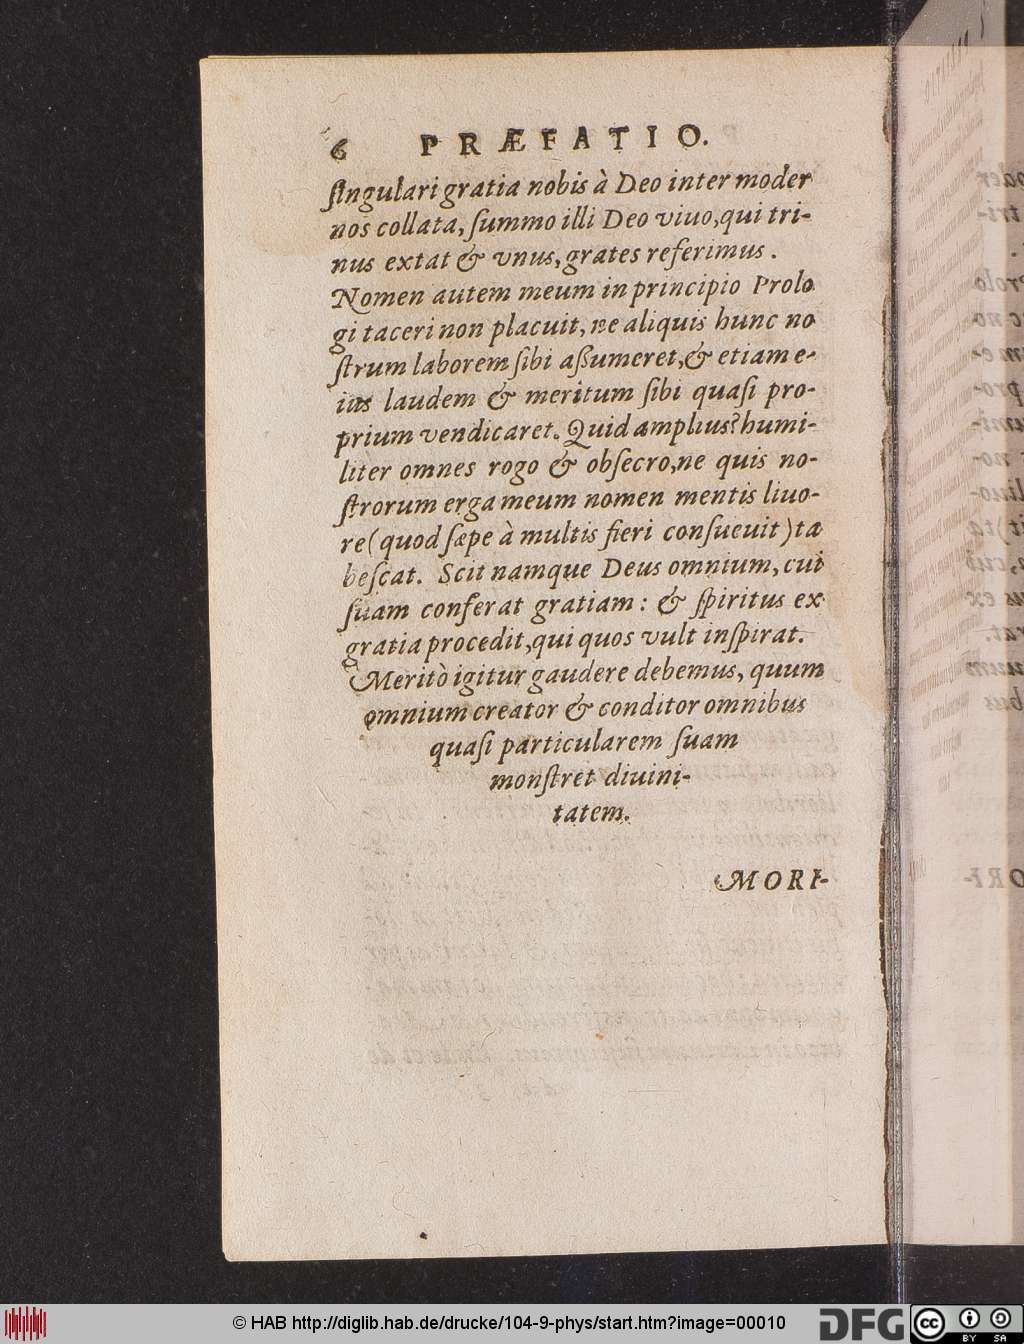 6 PRÆFATIO.
ſingulari gratia nobis à Deo inter moder
nos collata, ſummo illi Deo viuo, qui tri-
nus extat & vnus, grates referimus.
Nomen autem meum in principio Prolo
gi taceri non placuit, ne aliquis hunc no
ſtrum laborem ſibi aßumeret, & etiam e-
ius laudem & meritum ſibi quaſi pro-
prium vendicaret. Quid amplius? humi-
liter omnes rogo & obſecro, ne quis no-
ſtrorum erga meum nomen mentis liuo-
re (quod ſæpe à multis fieri conſueuit) ta
beſcat. Scit namque Deus omnium, cui
ſuam conferat gratiam: & ſpiritus ex
gratia procedit, qui quos vult inſpirat.
Meritò igitur gaudere debemus, quum
omnium creator & conditor omnibus
quaſi particularem ſuam
monſtret diuini-
tatem.
MORI-
© HAB http://diglib.hab.de/drucke/104-9-phys/start.htm?image=00010
DFG
cc BY SA